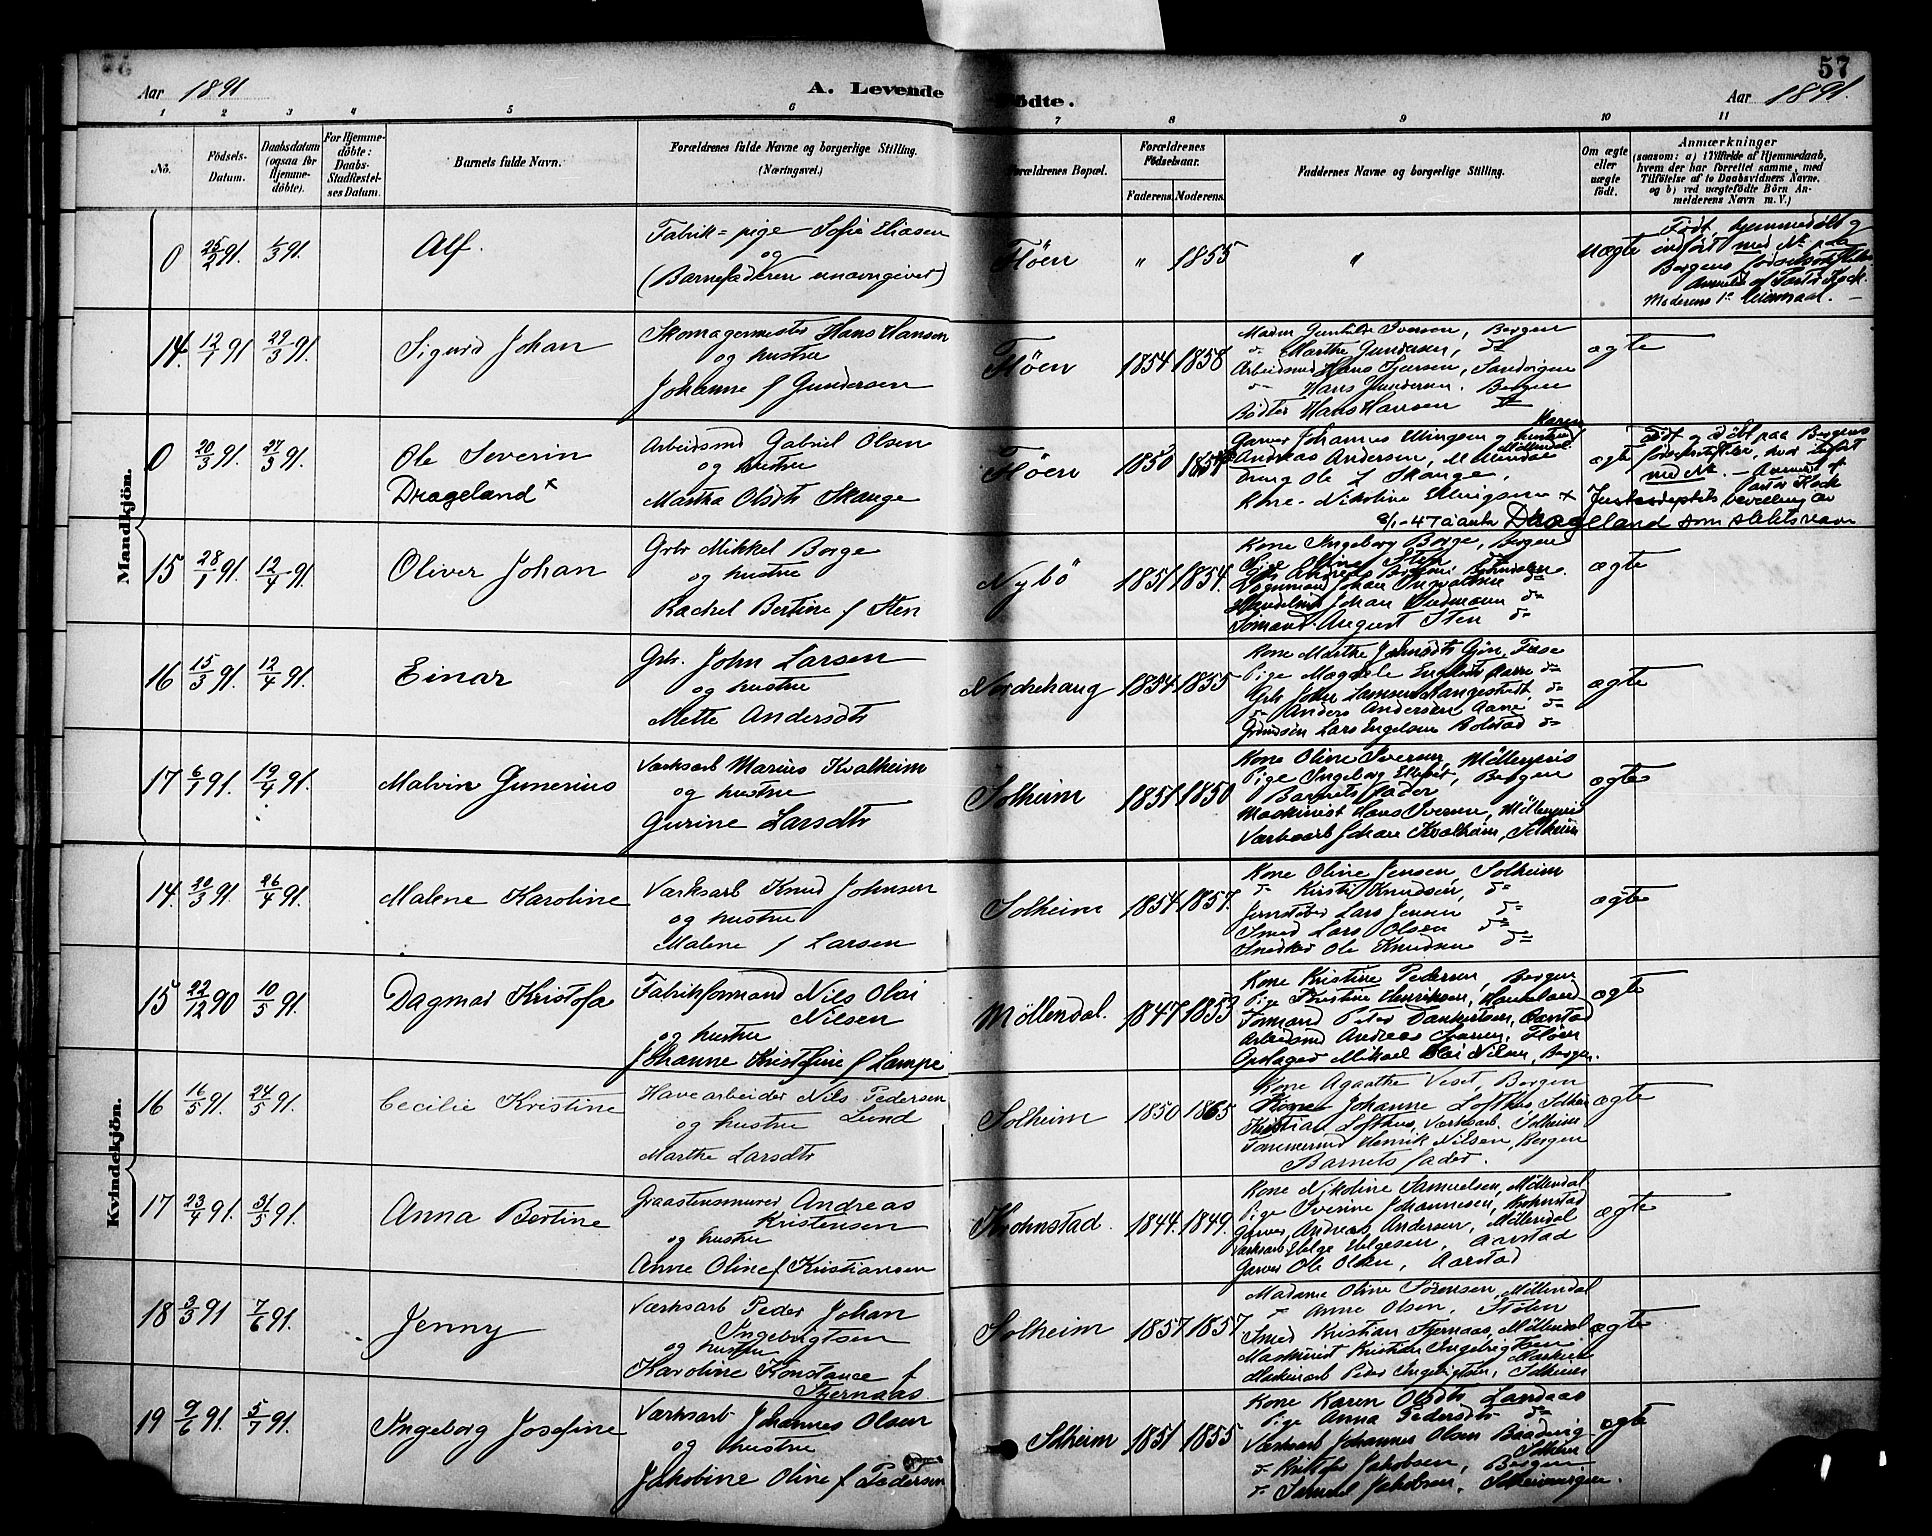 57
Aar 1891 A. Levende Fødte. Aar 1891.
1 2 3 4 5 6 7 8 9 10 11
No.
Födsels-Datum.
Daabsdatum (ogsaa for Hjemme-döbte).
For Hjemme-döbte: Daabs-Stadfæstel-ses Datum.
Barnets fulde Navn.
Forældrenes fulde Navne og borgerlige Stilling. (Næringsvei.)
Forældrenes Bopæl.
Forældrenes Födselsaar.
Faderens. Moderens.
Faddernes Navne og borgerlige Stilling.
Om ægte eller uægte födt.
Anmærkninger
(saasom: a) i Tilfælde af Hjemmedaab, hvem der har forrettet samme, med Tilföielse af to Daabsvidners Navne, og b) ved uægtefödte Börn An-melderens Navn m. V.)
Mandkjön.
0 25/2 91. 1/3 91. Alf.
Fabrik-pige Sofie Eliasen
og
(Barnefaderen unavngivet)
Flöen " 1855 " uægte
Født, hjemmedøbt og
indført med No. paa
Bergens fødselsstiftelse
Anmeldt af Pastor Kock.
Moderens 1ste leiermaal.
14. 12/1 91 29/3 91. Sigurd Johan
Skomagermester Hans Hansen
og hustru
Johanne f Gundersen
Flöen 1854 1858
Madm Gunhilde Iversen, Bergen
do Marthe Gundersen, do
Arbeidsmd Hans Iversen, Sandvigen
do Hans Gundersen. Bergen
Bödker Hans Hansen do
ægte
0 20/3 91. 27/3 91. Ole Severin
Drageland x
Arbeidsmd Gabriel Olsen
og hustru
Martha Olsdtr Skauge
Flöen 1850 1854
Garver Johannes Ellingsen og hustru Karen
Andreas Andersen, Möllendal
Ung Ole f Skauge,
Kone Nikoline Ellingsen
ægte
Født og døbt paa Bergens
fødselsstiftelse, hvor indført
med No. Anmeldt af
Pastor Kock
x Justisdeptets bevilling av
8/1-47 à anta Drageland som slektsnavn
15 28/1 91. 12/4 91. Oliver Johan
Grbr Mikkel Borge
og hustru
Rachel Bertine f Sten
Nybö 1851 1854.
Kone Ingeborg Borge, Bergen
Pige Oline Sten do
Johan do
Handelsmd Johan do
Sömand August Sten do
ægte
16 15/3 91. 12/4 91. Einar
Grbr. John Larsen
og hustru
Mette Andersdtr
Nordrehaug 1854 1855
Kone Marthe Fane
Pige Magdele do
Grbr Larsen do
do Anders Andersen Aarre do
Grdmdsön Lars Engelsen Bolstad do
ægte
17 6/1 91. 19/4 91. Malvin Gunerius
Værksarb Marius Kvalheim
og hustru
Gurine Larsdtr
Solheim 1851 1850
Kone Oline Iversen, Möllenpris
Pige Ingeborg Bergen
Barnets fader
Maskinist Hans Iversen, Möllenpris
Værksarb Johan Kvalheim, Solheim
ægte
Kvindekjön.
14. 20/3 91. 26/4 91. Malene Karoline
Værksarb Knud Johnsen
og hustru
Malene f Larsen
Solheim 1854 1857.
Kone Oline Jensen, Solheim
do Kirsti Knudsen, do
Jernstöber Lars Jensen do
Smed Lars Olsen do
Snedker Ole Knudsen do
ægte
15 22/12 90 10/5 91. Dagmar Kristofa
Fabrikformand Nils Olai
Nilsen
og hustru
Johanne Kristofine f Lampe
Möllendal. 1847 1853
Kone Kristine Pedersen, Bergen
Pige Kristine Henriksen, Haukeland
Formand Peter Dankertsen, Aarstad
Arbeidsmd Andreas Flöen
Opslager Mikael Olai Nilsen, Bergen.
ægte
16 16/5 91. 24/5 91. Cecilie Kristine
Havearbeider Nils Pedersen
Lund
og hustru
Marthe Larsdtr
Solheim 1850 1865
Kone Agathe Veset, Bergen
Kone Johanne Lofthus Solheim
Kristian Lofthus, Værksarb. Solheim
Tömmermd Henrik Nilsen, Bergen
Barnets fader.
ægte
17 23/4 91. 31/5 91. Anna Bertine
Graastensmurer Andreas
Kristensen
og hustru
Anne Oline f Kristiansen
Krohnstad. 1844. 1849.
Kone Nikoline Samuelsen, Möllendal
Pige Iverine Johannesen, Krohnstad
Garver Andreas Andersen, Möllendal
Værksarb Helge Helgesen, Aarstad
Garver Ole Olsen, Aarstad
ægte
18 3/3 91 7/6 91. Jenny
Værksarb Peder Johan
Ingebrigtsen
og hustru
Karoline Konstance f
Stjernaas
Solheim 1857 1857
Madame Oline Sörensen, Möllendal
do Anne Olsen, Stölen
Smed Kristian Stjernaas, Möllendal
Maskinist Kristian Ingebrigtsen
Maskinarb Peder Ingebrigtsen, Solheim
ægte
19 9/6 91. 5/7 91. Ingeborg Josefine
Værksarb Johannes Olsen
og hustru
Jakobine Oline f Pedersen
Solheim 1851 1855
Kone Karen Olsdtr Landaas
Pige Anna Pedersdtr do
Værksarb Johannes Olsen
Solheim
do Kristofer Jakobsen, Bergen
do Samuel Jakobsen, Solheimsvigen.
ægte